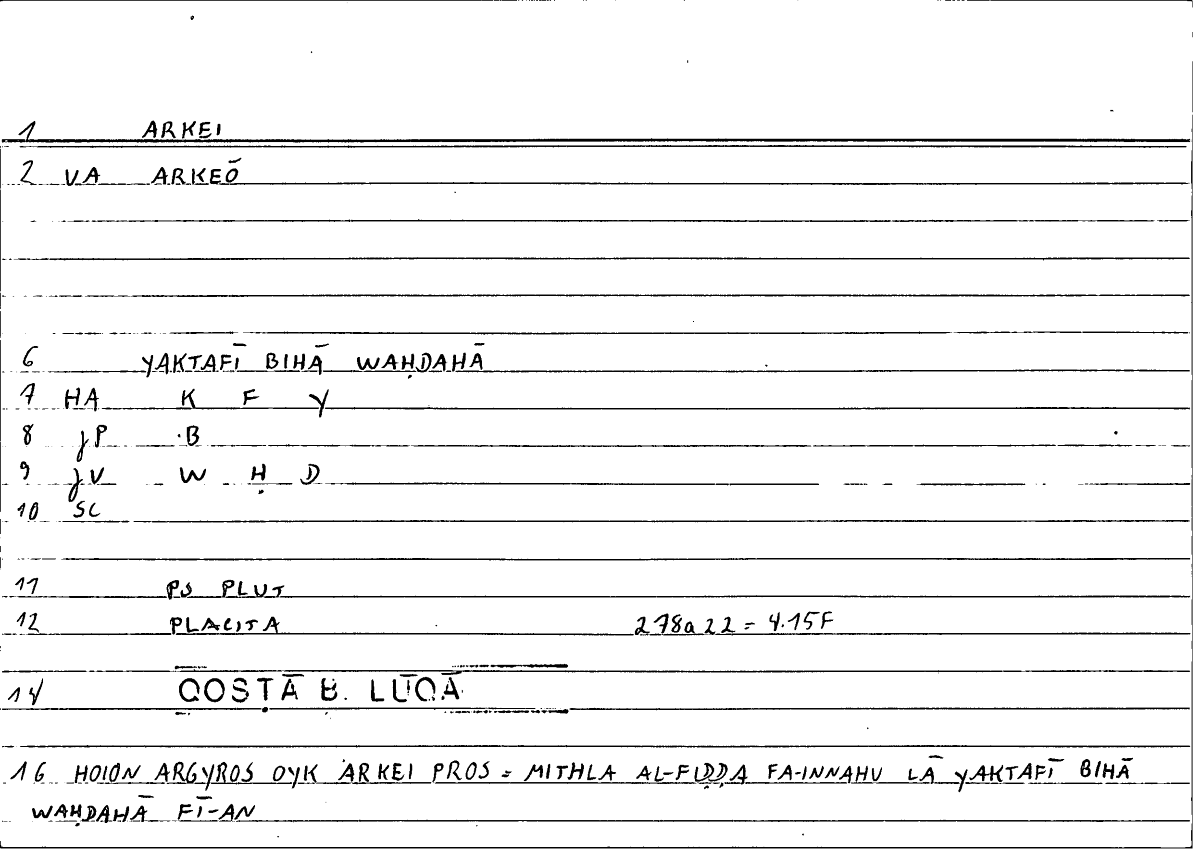 1 ARKEI
2 VA ARKEŌ
6 YAKTAFĪ BIHĀ WAḤDAHĀ
7 HA K F Y
8 JP B
9 JV W Ḥ D
10 SC
11 PS PLUT
12 PLACITA 278a22 = 4.15F
14 QOSṬĀ B. LŪQĀ
16 HOION ARGYROS OYK ARKEI PROS = MITHLA AL-FIḌḌA FA-INNAHU LĀ YAKTAFĪ BIHĀ
WAḤDAHĀ FĪ-AN